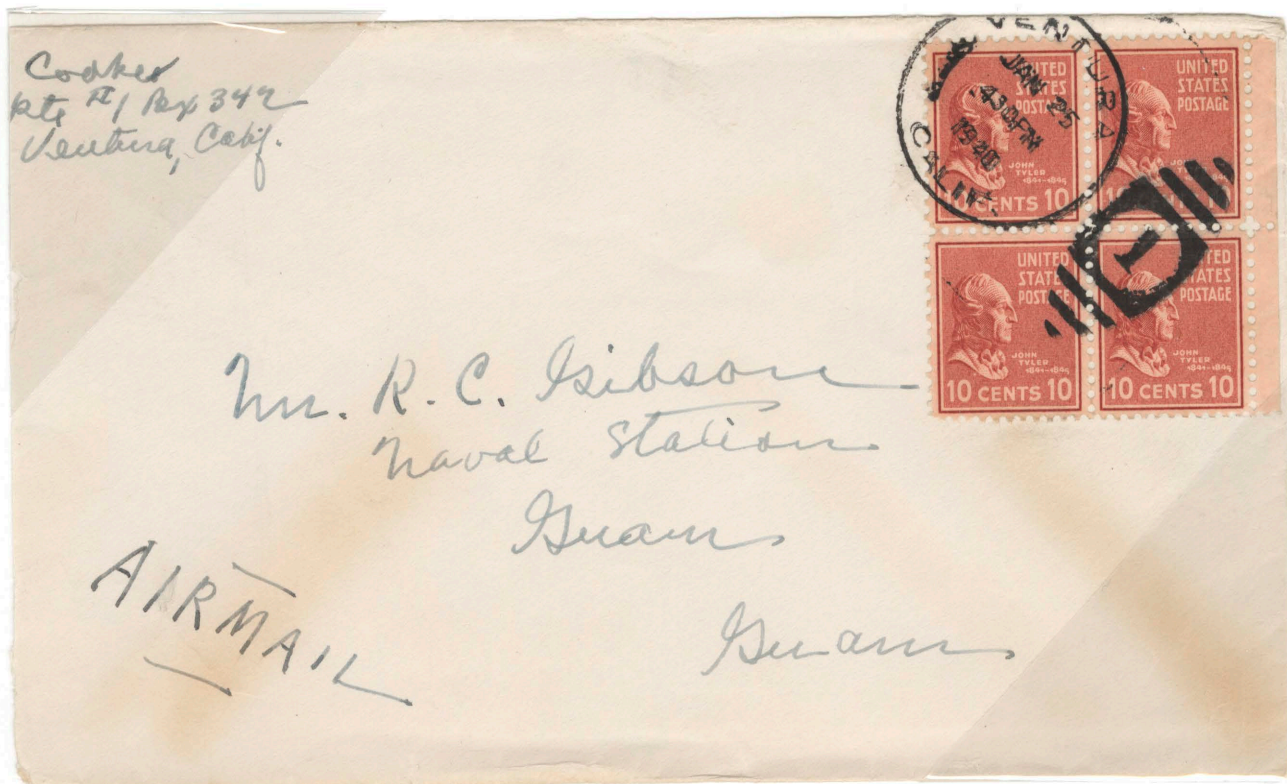 Rte #1 Box 342
Ventura, Calif.
VENTURA
JAN 25
430PM
1940
CALIF.
UNITED
STATES
POSTAGE
JOHN
TYLER
1841-1845
10 CENTS 10
UNITED
STATES
POSTAGE
JOHN
TYLER
1841-1845
10 CENTS 10
1
UNITED
STATES
POSTAGE
JOHN
TYLER
1841-1845
10 CENTS 10
UNITED
STATES
POSTAGE
JOHN
TYLER
1841-1845
10 CENTS 10
Mr. R. C. Gibson
Naval Station
Guam
Guam
AIRMAIL